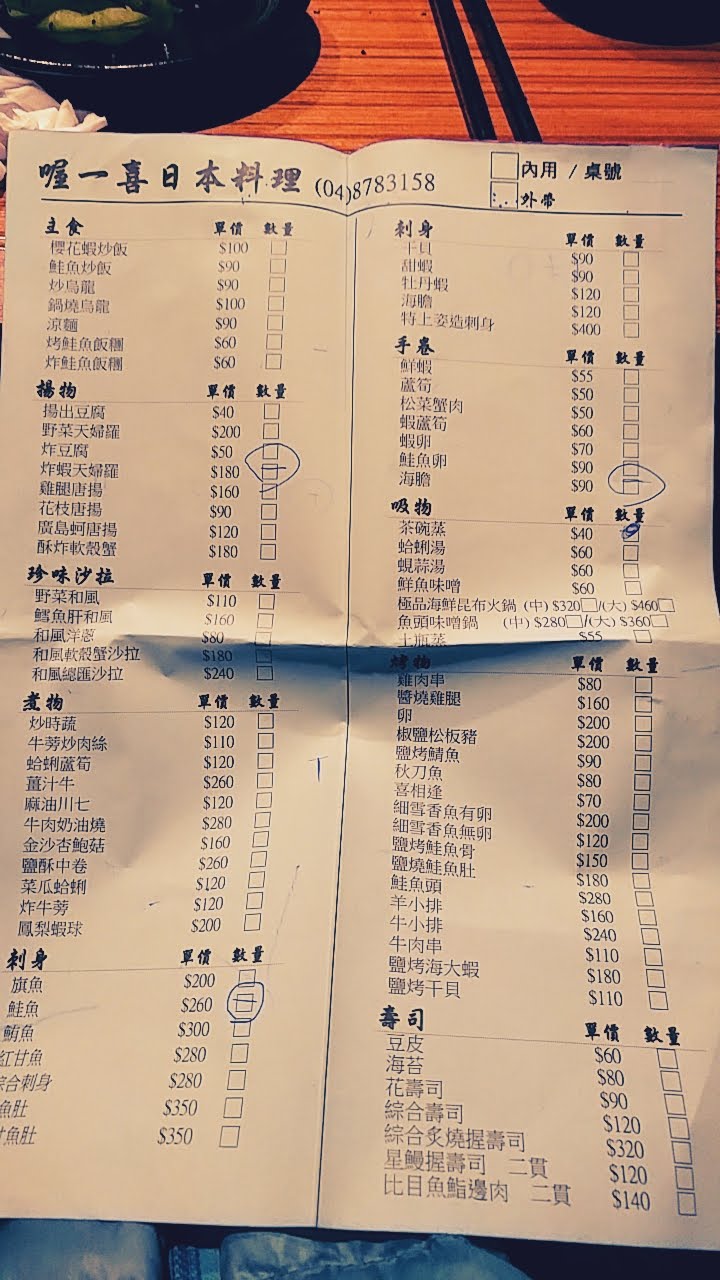 喔一喜日本料理 (04)8783158
內用 / 桌號
外帶
主食 單價 數量
櫻花蝦炒飯 $100
鮭魚炒飯 $90
炒烏龍 $90
鍋燒烏龍 $100
涼麵 $90
烤鮭魚飯糰 $60
炸鮭魚飯糰 $60
揚物 單價 數量
揚出豆腐 $40
野菜天婦羅 $200
炸豆腐 $50
炸蝦天婦羅 $180
雞腿唐揚 $160
花枝唐揚 $90
廣島蚵唐揚 $120
酥炸軟殼蟹 $180
珍味沙拉 單價 數量
野菜和風 $110
鱈魚肝和風 $160
和風洋蔥 $80
和風軟殼蟹沙拉 $180
和風總匯沙拉 $240
煮物 單價 數量
炒時蔬 $120
牛蒡炒肉絲 $110
蛤蜊蘆筍 $120
薑汁牛 $260
麻油川七 $120
牛肉奶油燒 $280
金沙杏鮑菇 $160
鹽酥中卷 $260
菜瓜蛤蜊 $120
炸牛蒡 $120
鳳梨蝦球 $200
刺身 單價 數量
旗魚 $200
鮭魚 $260
鮪魚 $300
紅甘魚 $280
綜合刺身 $280
魚肚 $350
魚肚 $350
刺身 單價 數量
干貝 $90
甜蝦 $90
牡丹蝦 $120
海膽 $120
特上姿造刺身 $400
手卷 單價 數量
鮮蝦 $55
蘆筍 $50
松菜蟹肉 $50
蝦蘆筍 $60
蝦卵 $70
鮭魚卵 $90
海膽 $90
吸物 單價 數量
茶碗蒸 $40
蛤蜊湯 $60
蜆蒜湯 $60
鮮魚味噌 $60
極品海鮮昆布火鍋 (中) $320 /(大) $460
魚頭味噌鍋 (中) $280 /(大) $360
土瓶蒸 $55
烤物 單價 數量
雞肉串 $80
醬燒雞腿 $160
卵 $200
椒鹽松板豬 $200
鹽烤鯖魚 $90
秋刀魚 $80
喜相逢 $70
細雪香魚有卵 $200
細雪香魚無卵 $120
鹽烤鮭魚骨 $150
鹽燒鮭魚肚 $180
鮭魚頭 $280
羊小排 $160
牛小排 $240
牛肉串 $110
鹽烤海大蝦 $180
鹽烤干貝 $110
壽司 單價 數量
豆皮 $60
海苔 $80
花壽司 $90
綜合壽司 $120
綜合炙燒握壽司 $320
星鰻握壽司 二貫 $120
比目魚鮨邊肉 二貫 $140